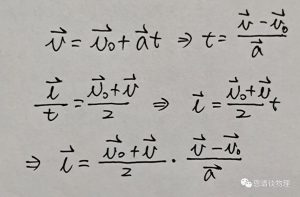 $\vec{v} = \vec{v}_0 + \vec{a}t \Rightarrow t = \frac{\vec{v} - \vec{v}_0}{\vec{a}}$
$\frac{\vec{l}}{t} = \frac{\vec{v}_0 + \vec{v}}{2} \Rightarrow \vec{l} = \frac{\vec{v}_0 + \vec{v}}{2} t$
$\Rightarrow \vec{l} = \frac{\vec{v}_0 + \vec{v}}{2} \cdot \frac{\vec{v} - \vec{v}_0}{\vec{a}}$